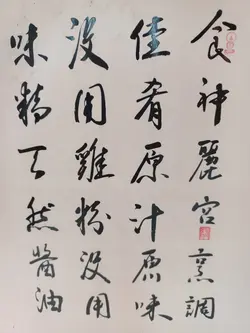 食神麗宮烹調
佳肴原汁原味
没用雞粉没用
味精天然醬油